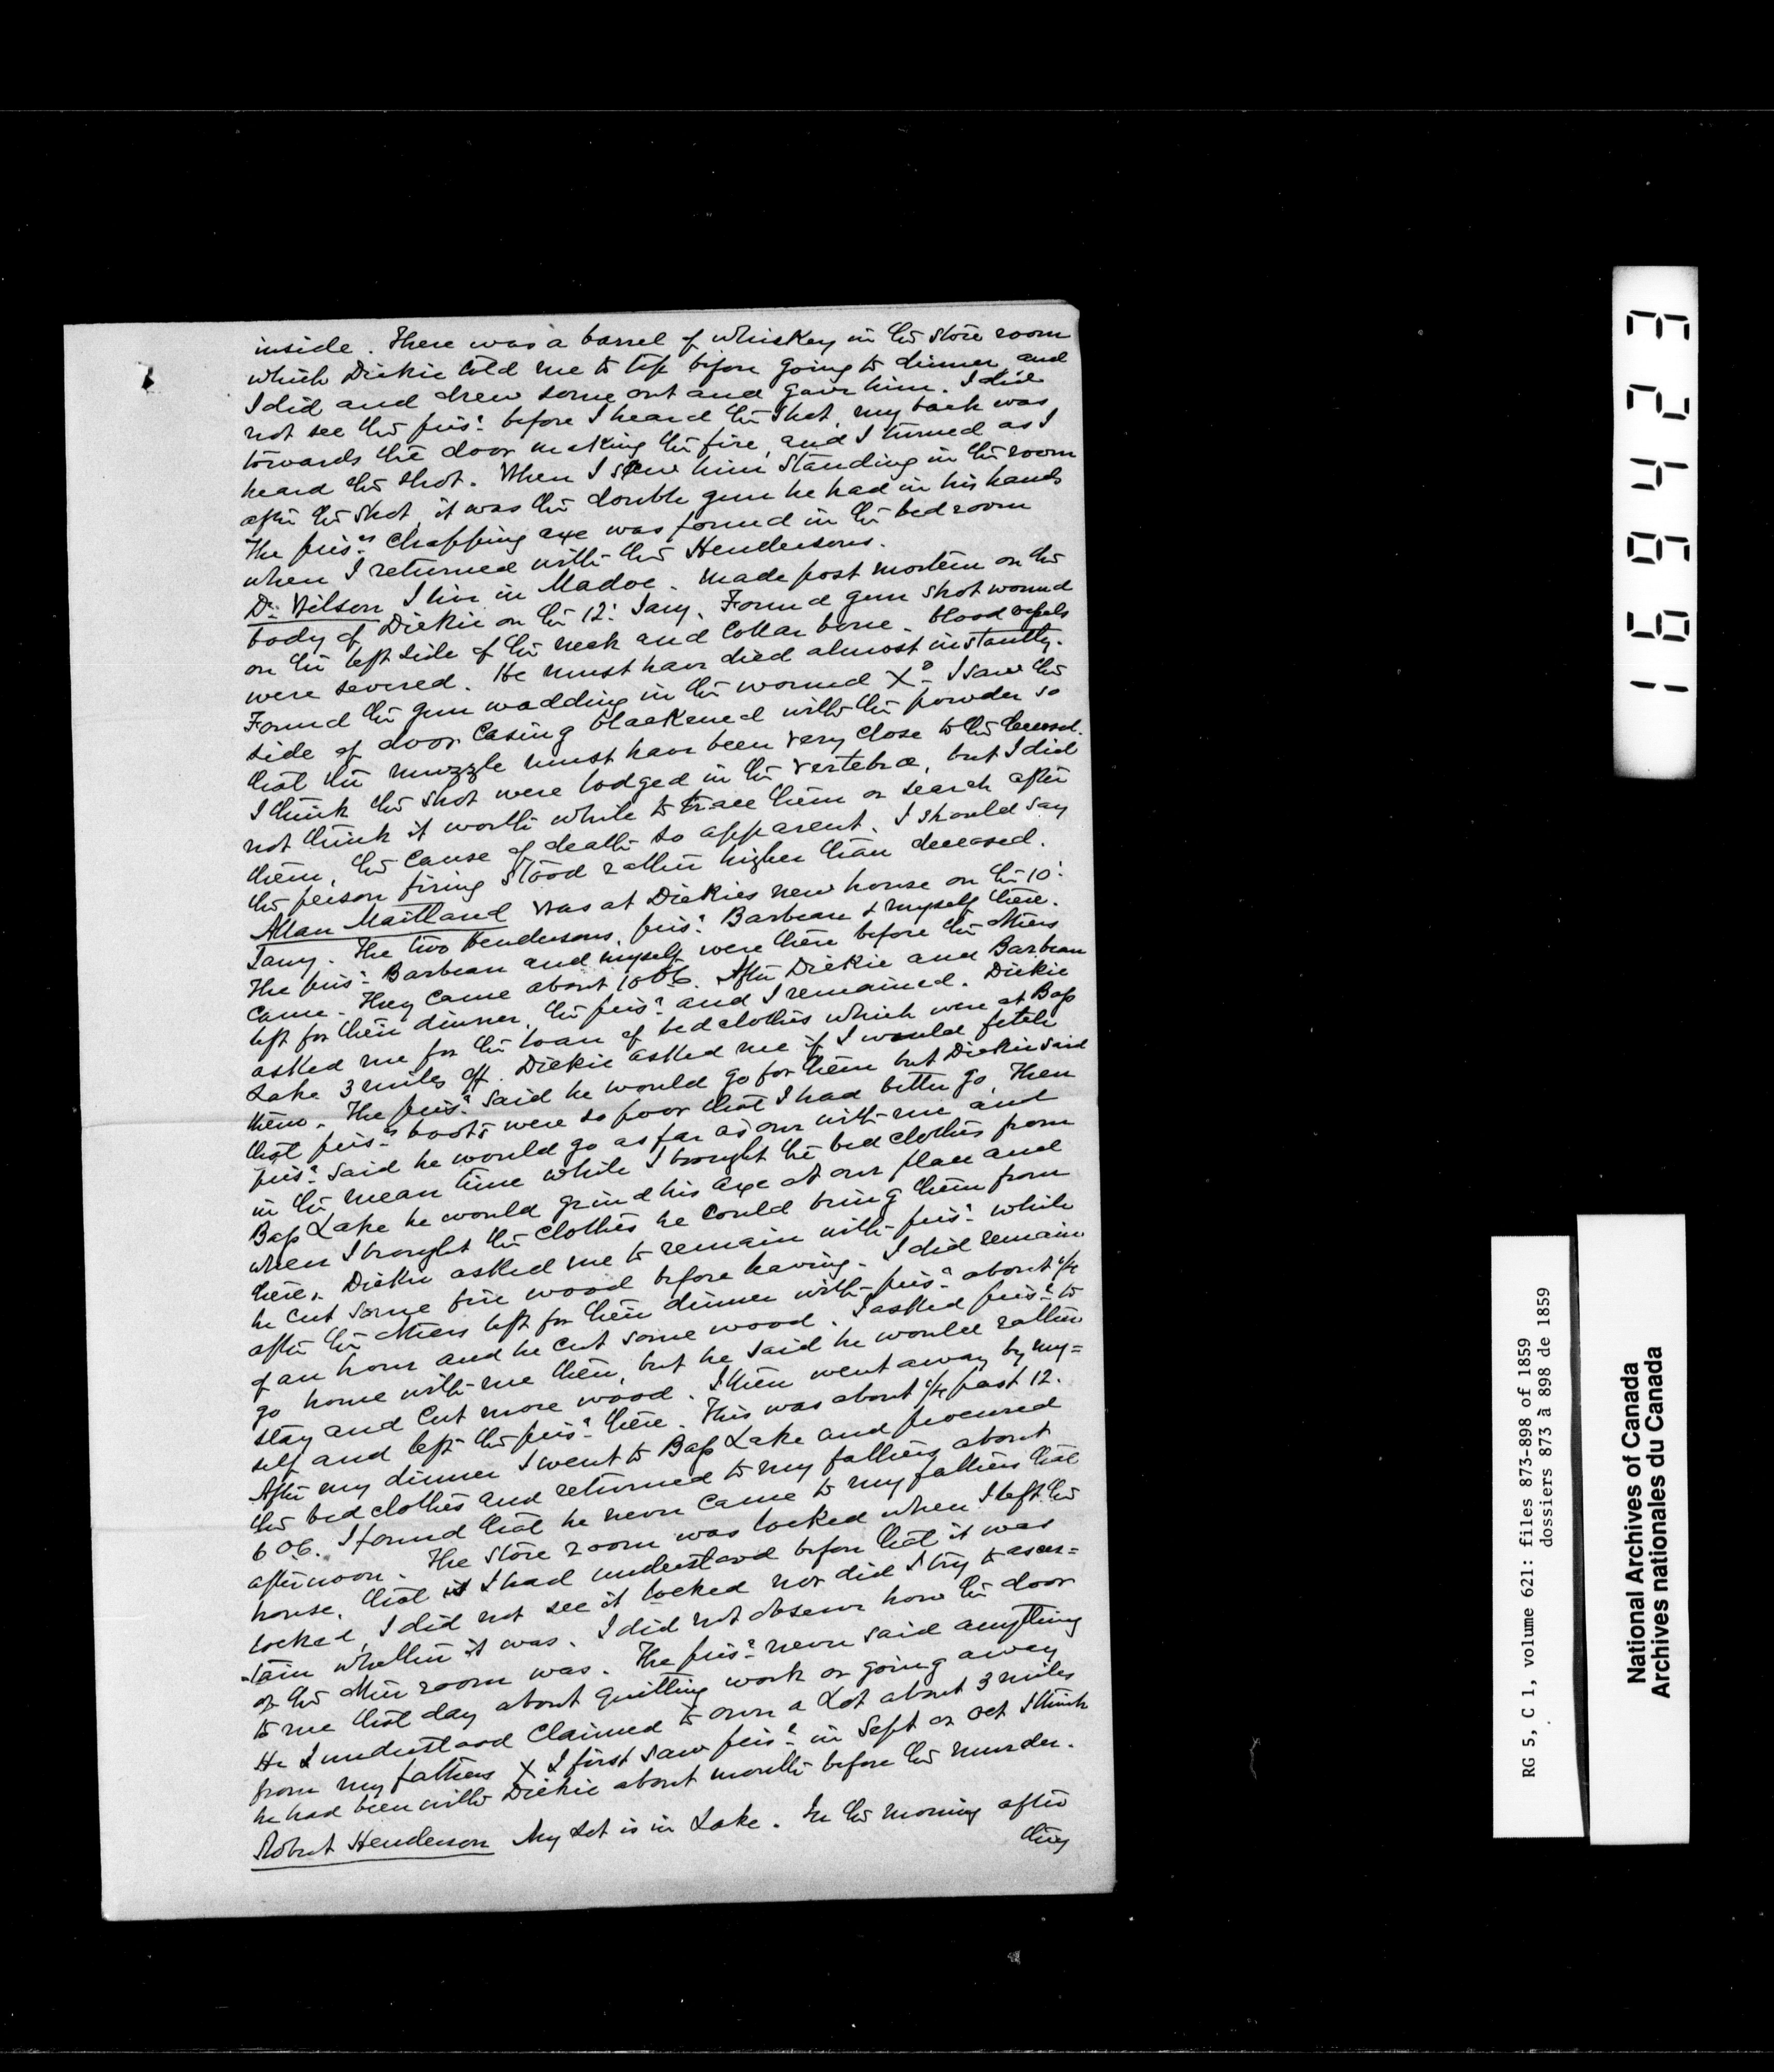 inside. There was a barrel of whiskey in the store room
which Dickie told me to tap before going to dinner, and
I did and drew some out and gave him. I did
not see the pris.r before I heard the shot, my back was
towards the door making the fire, and I turned as I
heard the shot. When I saw him standing in the room
after the shot, it was the double gun he had in his hands
The pris.rs chopping axe was found in the bed room
when I returned with the Hendersons.
Dr. Wilson I live in Madoc. Made post mortem on the
body of Dickie on the 12. Jany. Found gun shot wound
on the left side of the neck and collar bone. blood vessels
were severed. He must have died almost instantly.
Found the gun wadding in the wound Xd. I saw the
side of door casing blackened with the powder so
that the muzzle must have been very close to the deceased.
I think the shot were lodged in the vertebræ, but I did
not think it worth while to trace them or search after
them, the cause of death so apparent. I should say
the person firing stood rather higher than deceased.
Allan Maitland was at Dickies new house on the 10.
Jany. The two Hendersons, pris.r Barbeau & myself there.
The pris.r Barbeau and myself were there before the others
came. They came about 10 oC. After Dickie and Barbeau
left for their dinner, the pris.r and I remained. Dickie
asked me for the loan of bed clothes which were at Bass
Lake 3 miles off. Dickie asked me if I would fetch
them. The pris.r said he would go for them but Dickie said
that pris.rs boots were so poor that I had better go, then
pris.r said he would go as far as our with me and
in the mean time while I brought the bed clothes from
Bass Lake he would grind his axe at our place and
when I brought the clothes he could bring them from
there. Dickie asked me to remain with pris.r while
he cut some fire wood before leaving. I did remain
after the others left for their dinner with pris.r about 1/4
of an hour and he cut some wood. I asked pris.r to
go home with me then, but he said he would rather
stay and cut more wood. I then went away by my=
self and left the pris.r there. This was about 1/4 past 12.
After my dinner I went to Bass Lake and procured
the bed clothes and returned to my fathers about
6 oC. I found that he never came to my fathers that
afternoon. The store room was locked when I left the
house, that is I had understood before that it was
locked, I did not see it locked nor did I try to ascer=
-tain whether it was. I did not observe how the door
of the other room was. The pris.r never said anything
to me that day about quitting work or going away
He I understood claimed to own a Lot about 3 miles
from my fathers X I first saw pris.r in Sept or Oct I think
he had been with Dickie about month before the murder.
Robert Henderson My Lot is in Lake. In the morning after
they
169423
RG 5, C 1, volume 621: files 873-898 of 1859
dossiers 873 à 898 de 1859
National Archives of Canada
Archives nationales du Canada